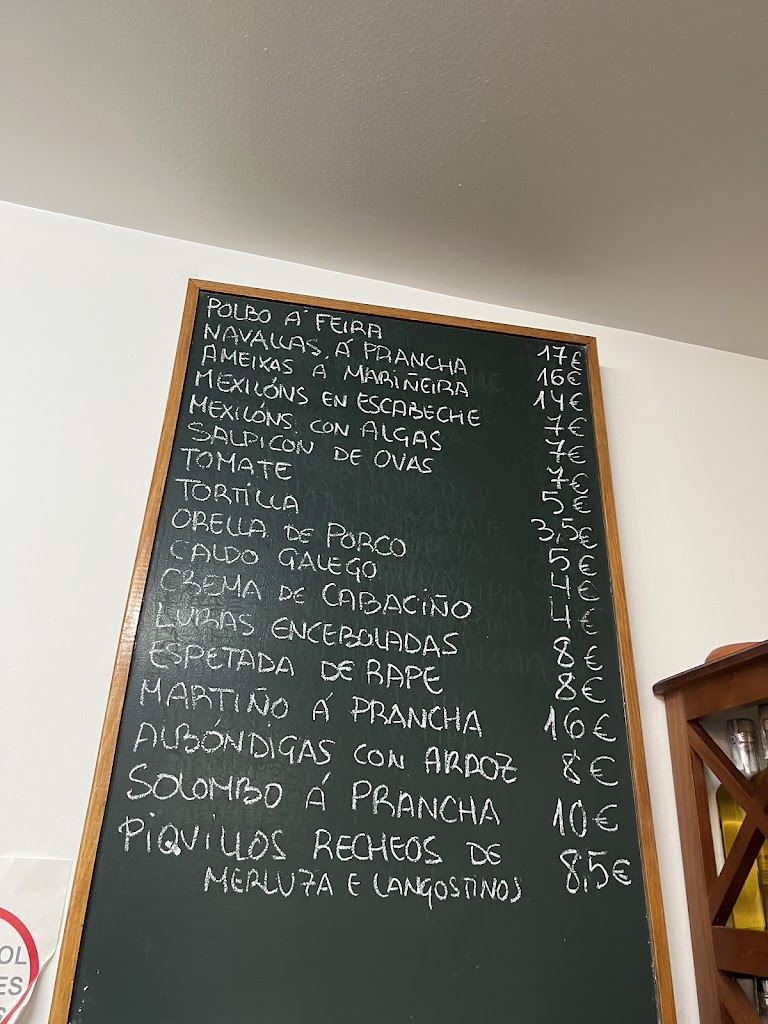 POLBO Á FEIRA 17€
NAVALLAS Á PRANCHA 16€
AMEIXAS A MARIÑEIRA 14€
MEXILÓNS EN ESCABECHE 7€
MEXILÓNS CON ALGAS 7€
SALPICON DE OVAS 7€
TOMATE 5€
TORTILLA 3,5€
ORELLA DE PORCO 5€
CALDO GALEGO 4€
CREMA DE CABACIÑO 4€
LURAS ENCEBOLADAS 8€
ESPETADA DE RAPE 8€
MARTIÑO Á PRANCHA 16€
ALBÓNDIGAS CON ARROZ 8€
SOLOMBO Á PRANCHA 10€
PIQUILLOS RECHEOS DE 8,5€
MERLUZA E LANGOSTINOS
OL
ES